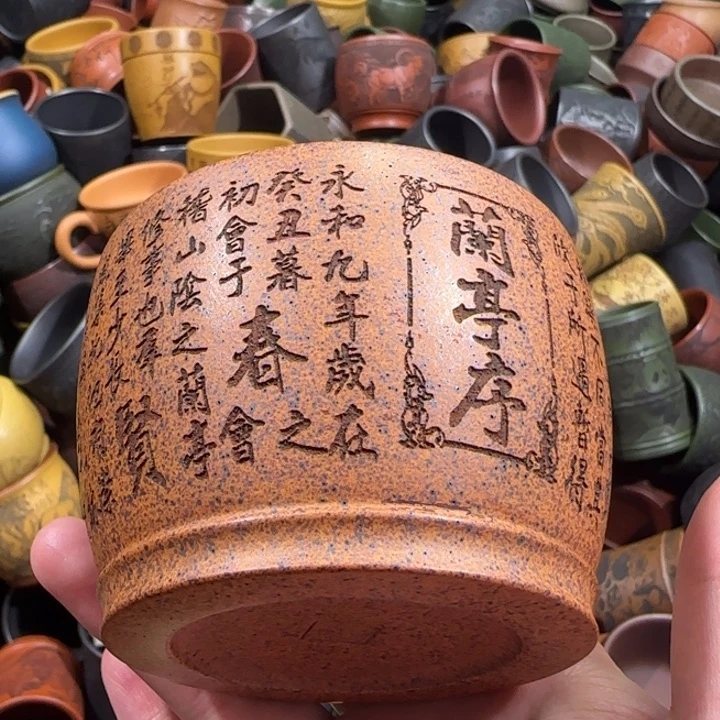 欣于所遇暫得
蘭亭序
永和九年歲在
癸丑暮春之
初會于會
稽山陰之蘭亭
修禊事也羣賢
畢至少長